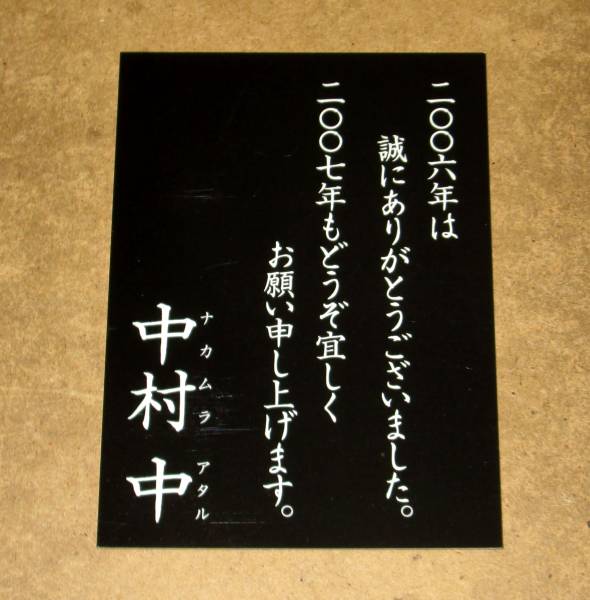 二〇〇六年は
誠にありがとうございました。
二〇〇七年もどうぞ宜しく
お願い申し上げます。
ナカムラ アタル
中村 中